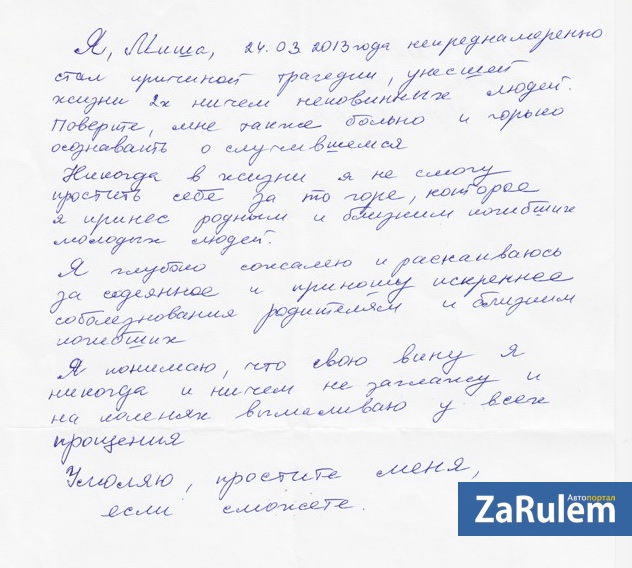 Я, Миша, 24.03.2013 года непреднамеренно
стал причиной трагедии, унесшей
жизни 2х ничем неповинных людей.
Поверьте, мне также больно и горько
осознавать о случившемся
Никогда в жизни я не смогу
простить себе за то горе, которое
я принес родным и близким погибших
молодых людей.
Я глубоко сожалею и раскаиваюсь
за содеянное и приношу искреннее
соболезнования родителям и близким
погибших
Я понимаю, что свою вину я
никогда и ничем не заглажу и
на коленях вымаливаю у всех
прощения
Умоляю, простите меня,
если сможете.
Автопортал
ZaRulem